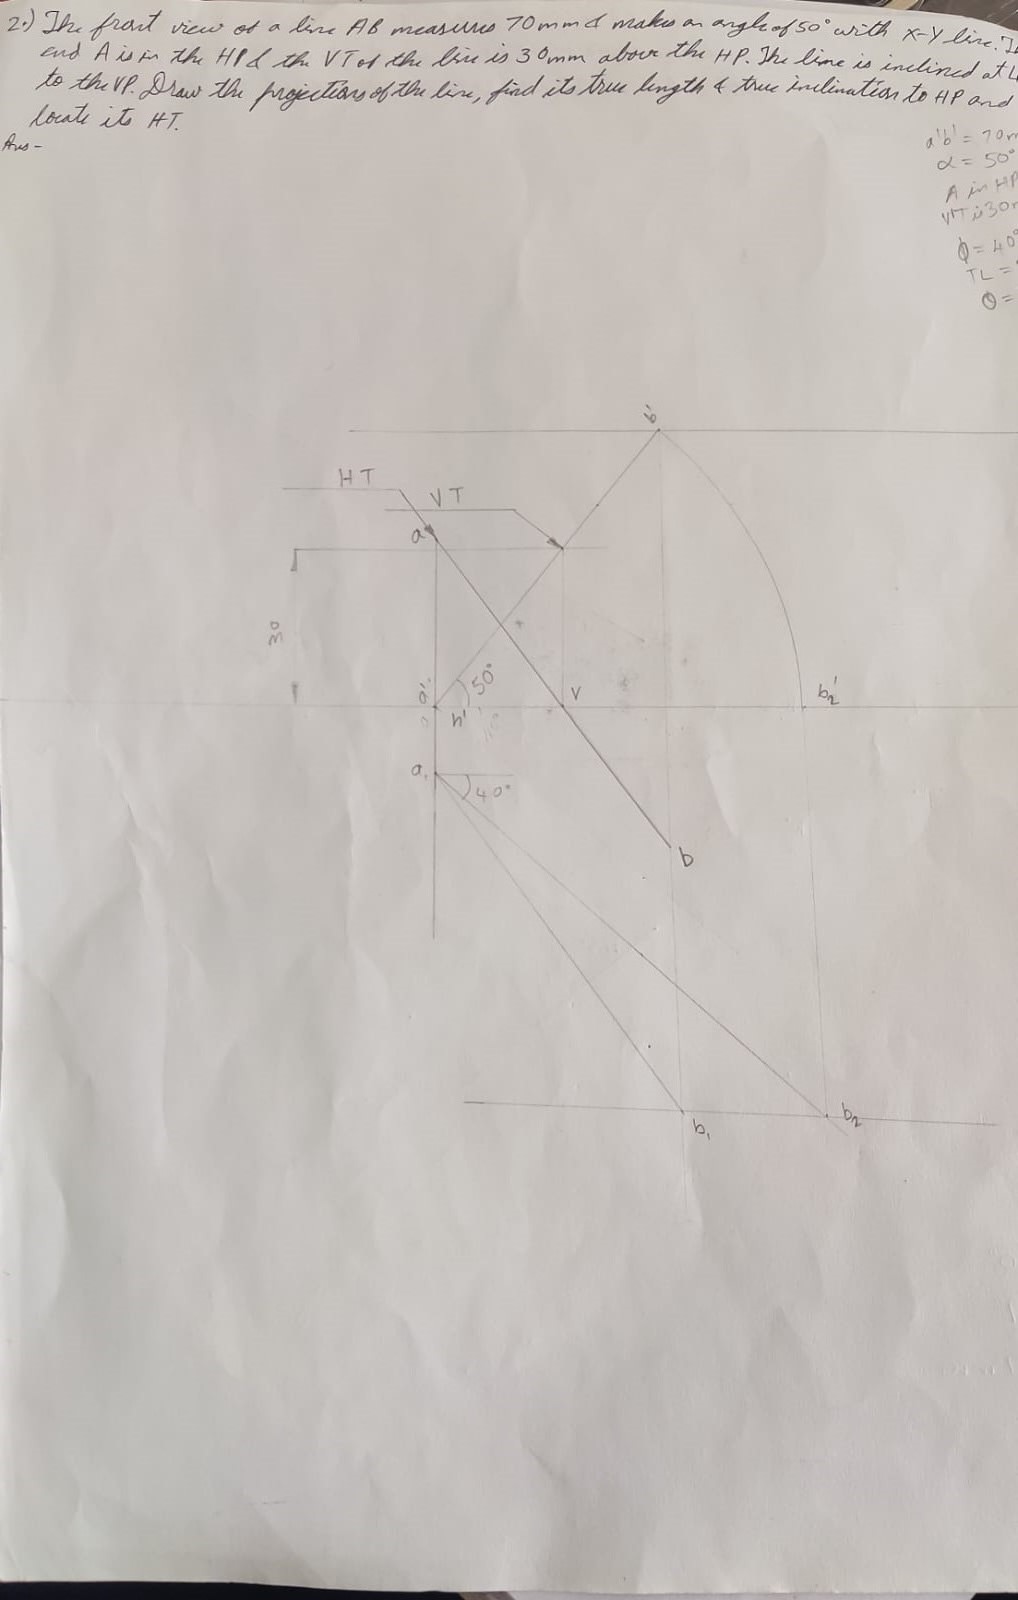 2.) The front view of a line AB measures 70mm & makes an angle of 50° with X-Y line.
end A is in the HP & the VT of the line is 30mm above the HP. The line is inclined at
to the VP. Draw the projections of the line, find its true length & true inclination to HP and
locate its HT.
Ans-
a'b' = 70
α = 50°
A in HP
VT is 30
Φ = 40°
TL =
θ =
b'
HT
VT
a
30
50°
a'
h'
v
b2'
a1
40°
b
b2
b1